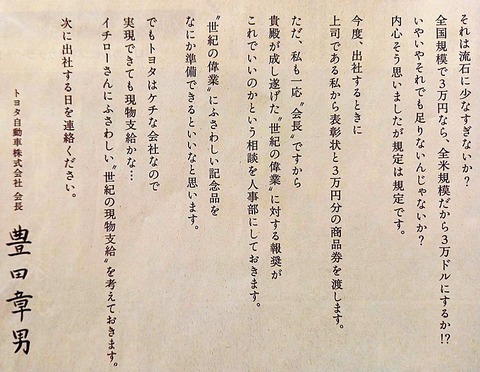 それは流石に少なすぎないか?
全国規模で３万円なら、全米規模だから３万ドルにするか!?
いやいやそれでも足りないんじゃないか?
内心そう思いましたが規定は規定です。
今度、出社するときに
上司である私から表彰状と３万円分の商品券を渡します。
ただ、私も一応〝会長〟ですから
貴殿が成し遂げた〝世紀の偉業〟に対する報奨が
これでいいのかという相談を人事部にしておきます。
〝世紀の偉業〟にふさわしい記念品を
なにか準備できるといいなと思います。
でもトヨタはケチな会社なので
実現できても現物支給かな…
イチローさんにふさわしい〝世紀の現物支給〟を考えておきます。
次に出社する日を連絡ください。
トヨタ自動車株式会社 会長
豊田章男